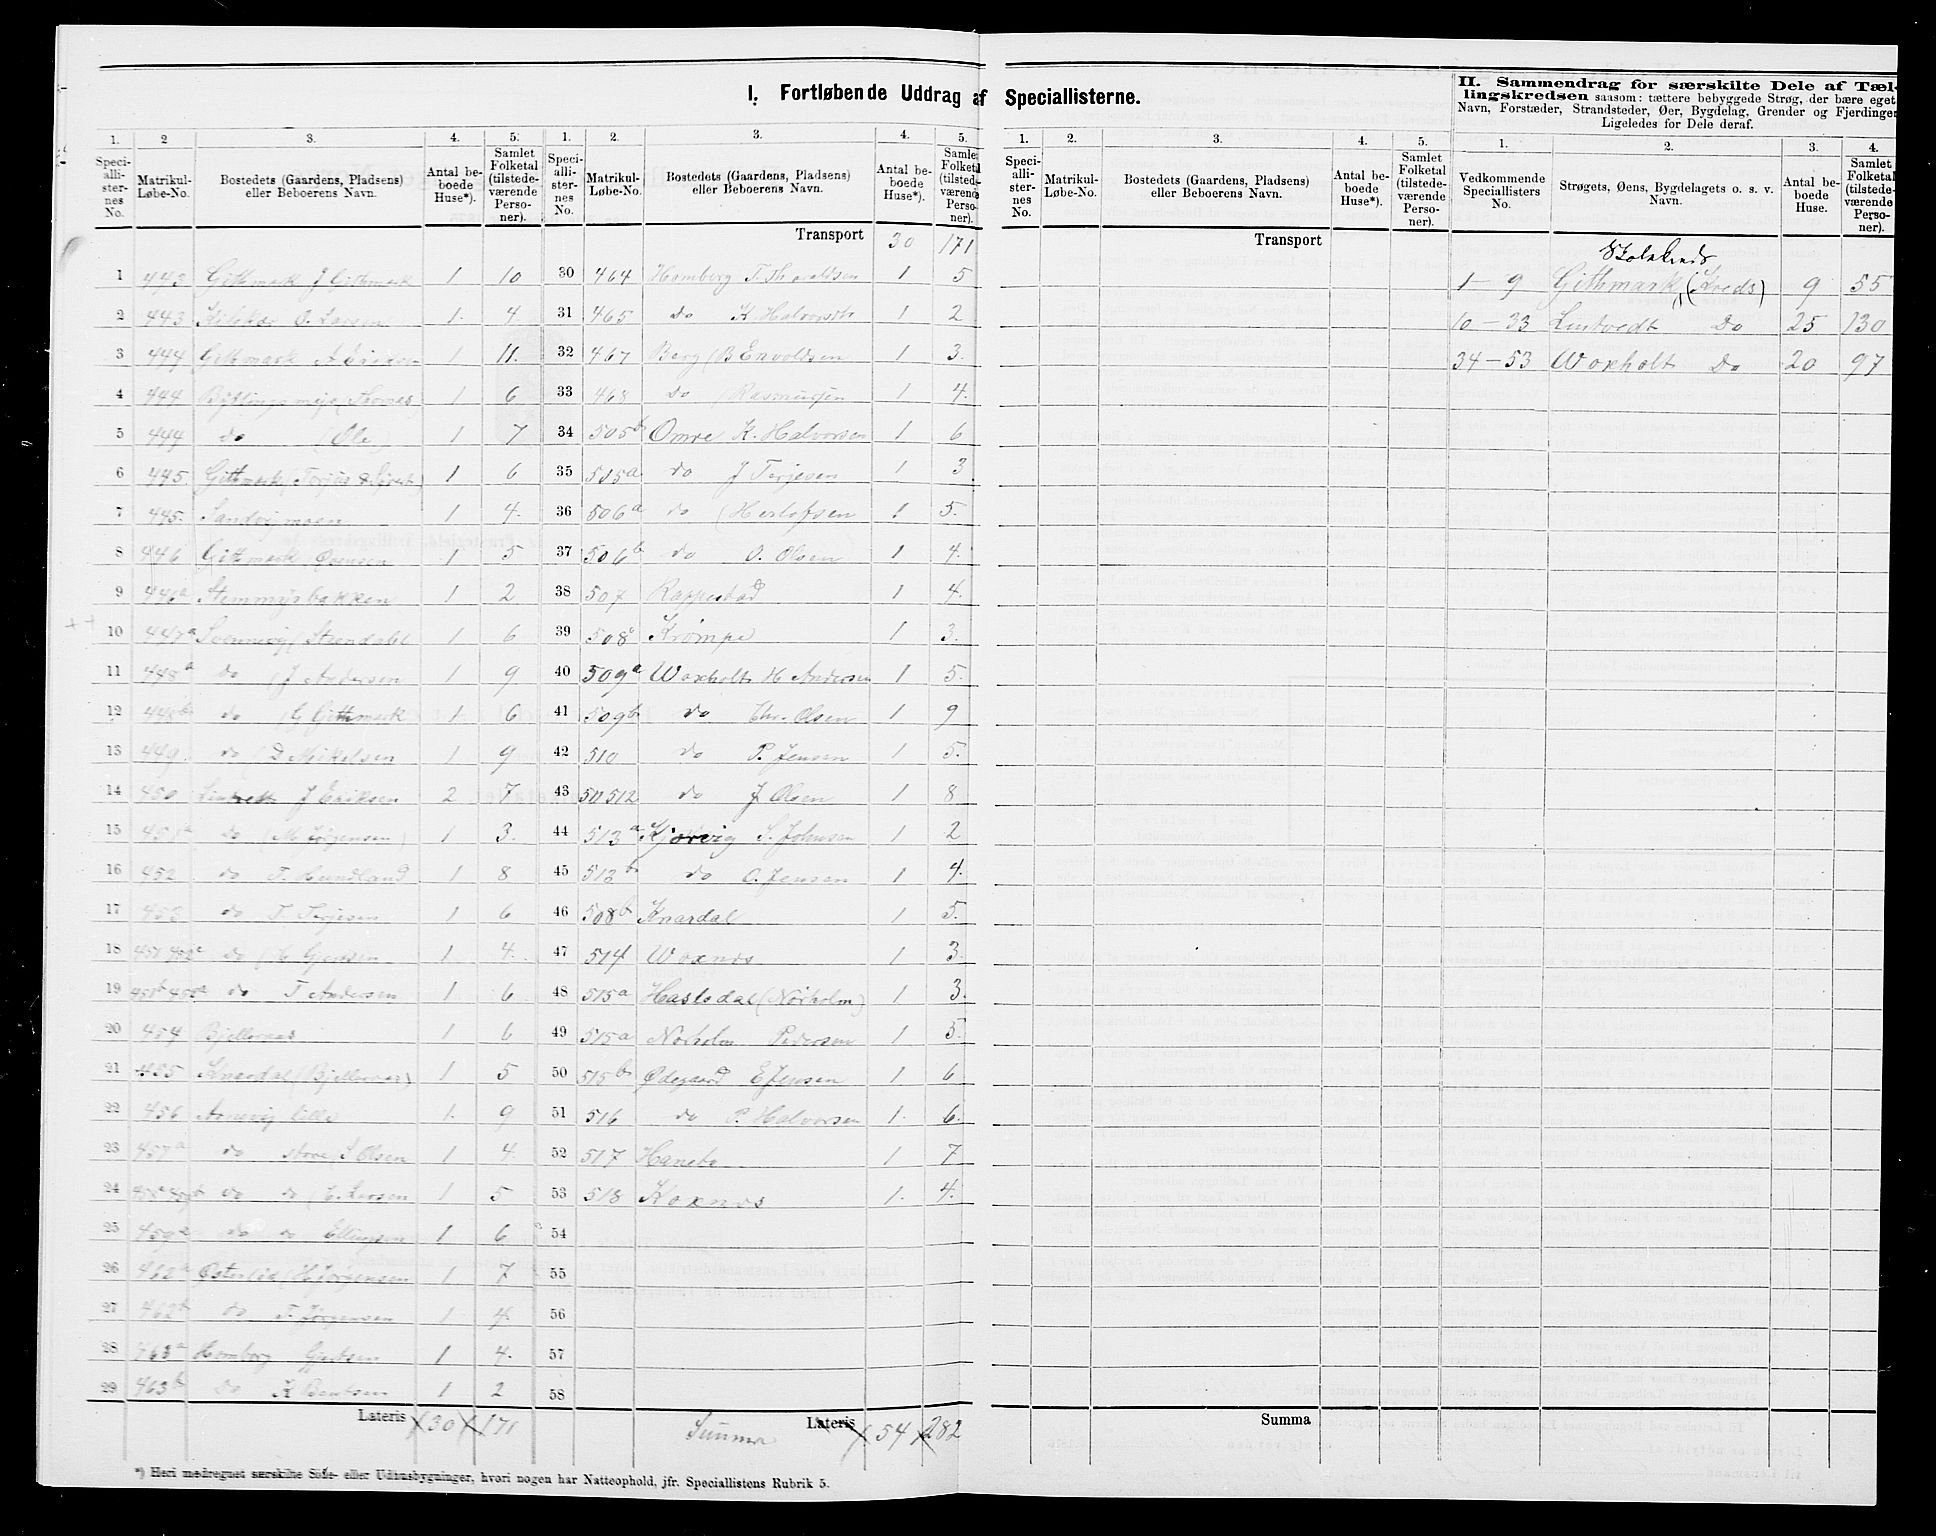 I. Fortløbende Uddrag af Speciallisterne.
1. 2 3. 4. 5.
Speciallisternes No. Matrikul-Løbe-No. Bostedets (Gaardens, Pladsens) eller Beboerens Navn. Antal beboede Huse*). Samlet Folketal (tilstedeværende Personer).
1 443 Githmark J Githmark 1 10
2 443 O. Larsen 1 4
3 444 Githmark A Eriksen 1 11.
4 444 1 6
5 444 do (Ole) 1 7
6 445 Githmark (Terjus 1 6
7 445. Sandvigmoen 1 4.
8 446 Githmark 1 5
9 446a Stemmyrbakken 1 2
10 447a 1 6
11 448a do (J Andersen 1 9
12 448b do (G Githmark 1 6
13 449. do (D Mikelsen 1 9
14 450 J Eriksen 2 7
15 451a do (M Jørgensen) 1 3.
16 452 do T. Hundland 1 8
17 453 do T. Terjesen 1 6
18 do 1 4.
19 do T Andersen 1 6
20 454 1 6
21 455 Knardal 1 5
22 456 Arnevig lille 1. 9
23 457a do store S Olsen 1 4
24 do do Larsen 1 5
25 459a do do Ellingsen 1 6
26 462a Jørgensen 1 7
27 462b do T. Jørgensen 1 4
28 463a Homborg Gjertsen 1 4.
29 463b do K Bentsen 1 2
Lateris 30 171
1. 2. 3. 4. 5.
Speciallisternes No. Matrikul-Løbe-No. Bostedets (Gaardens, Pladsens) eller Beboerens Navn. Antal beboede Huse*). Samlet Folketal (tilstedeværende Personer).
Transport 30 171
30 464 Homberg T. Thoraldsen 1 5
31 465 do K Halvorsen 1 2
32 467 Berg (B Envoldsen 1 3.
33 468 do (Rasmusen 1 4.
34 505b Omre K. Halvorsen 1 6
35 505a do J Terjesen 1 3
36 506a do (Herlofsen 1 5.
37 506b do O. Olsen 1 4.
38 507 Rappestad 1 4.
39 508 Krømpe 1 3.
40 509a Woxholt H Andersen 1 5.
41 509b do Chr. Olsen 1 9
42 510 do P. Jensen 1 5.
43 511 512 do J Olsen 1 8
44 513a Kjørvig S. Johnsen 1 2
45 513b do O. Jensen 1 4.
46 508b Knardal 1 5.
47 514 Woxnes 1 3.
48 515a Haslsdal (Nørholm) 1 3.
49 515a Nørholm Pedersen 1 5.
50 515b Ødegaard E Jensen 1 6
51 516 do P. Halvorsen 1. 6.
52 517 Hanebo 1 7
53 518 Koxnes 1. 4.
54
55
56
57
58
Summa Lateris 54 282
*) Heri medregnet særskilte Side- eller Udhusbygninger, hvori nogen har Natteophold, jfr. Speciallistens Rubrik 5.
1. 2. 3. 4. 5.
Speciallisternes No. Matrikul-Løbe-No. Bostedets (Gaardens, Pladsens) eller Beboerens Navn. Antal beboede Huse*). Samlet Folketal (tilstedeværende Personer).
Transport
Summa
II. Sammendrag for særskilte Dele af Tællingskredsen saasom: tættere bebyggede Strøg, der bære eget
Navn, Forstæder, Strandsteder, Øer, Bygdelag, Grender og Fjerdinger
Ligeledes for Dele deraf.
1. 2. 3. 4.
Vedkommende Speciallisters No. Strøgets, Øens, Bygdelagets o. s. v. Navn. Antal beboede Huse. Samlet Folketal (tilstedeværende Personer).
Skolekreds
1 - 9 Githmark (Kreds) 9 55
10 - 33 Lintvedt do 25 130
34 - 53 Woxholt do 20 97